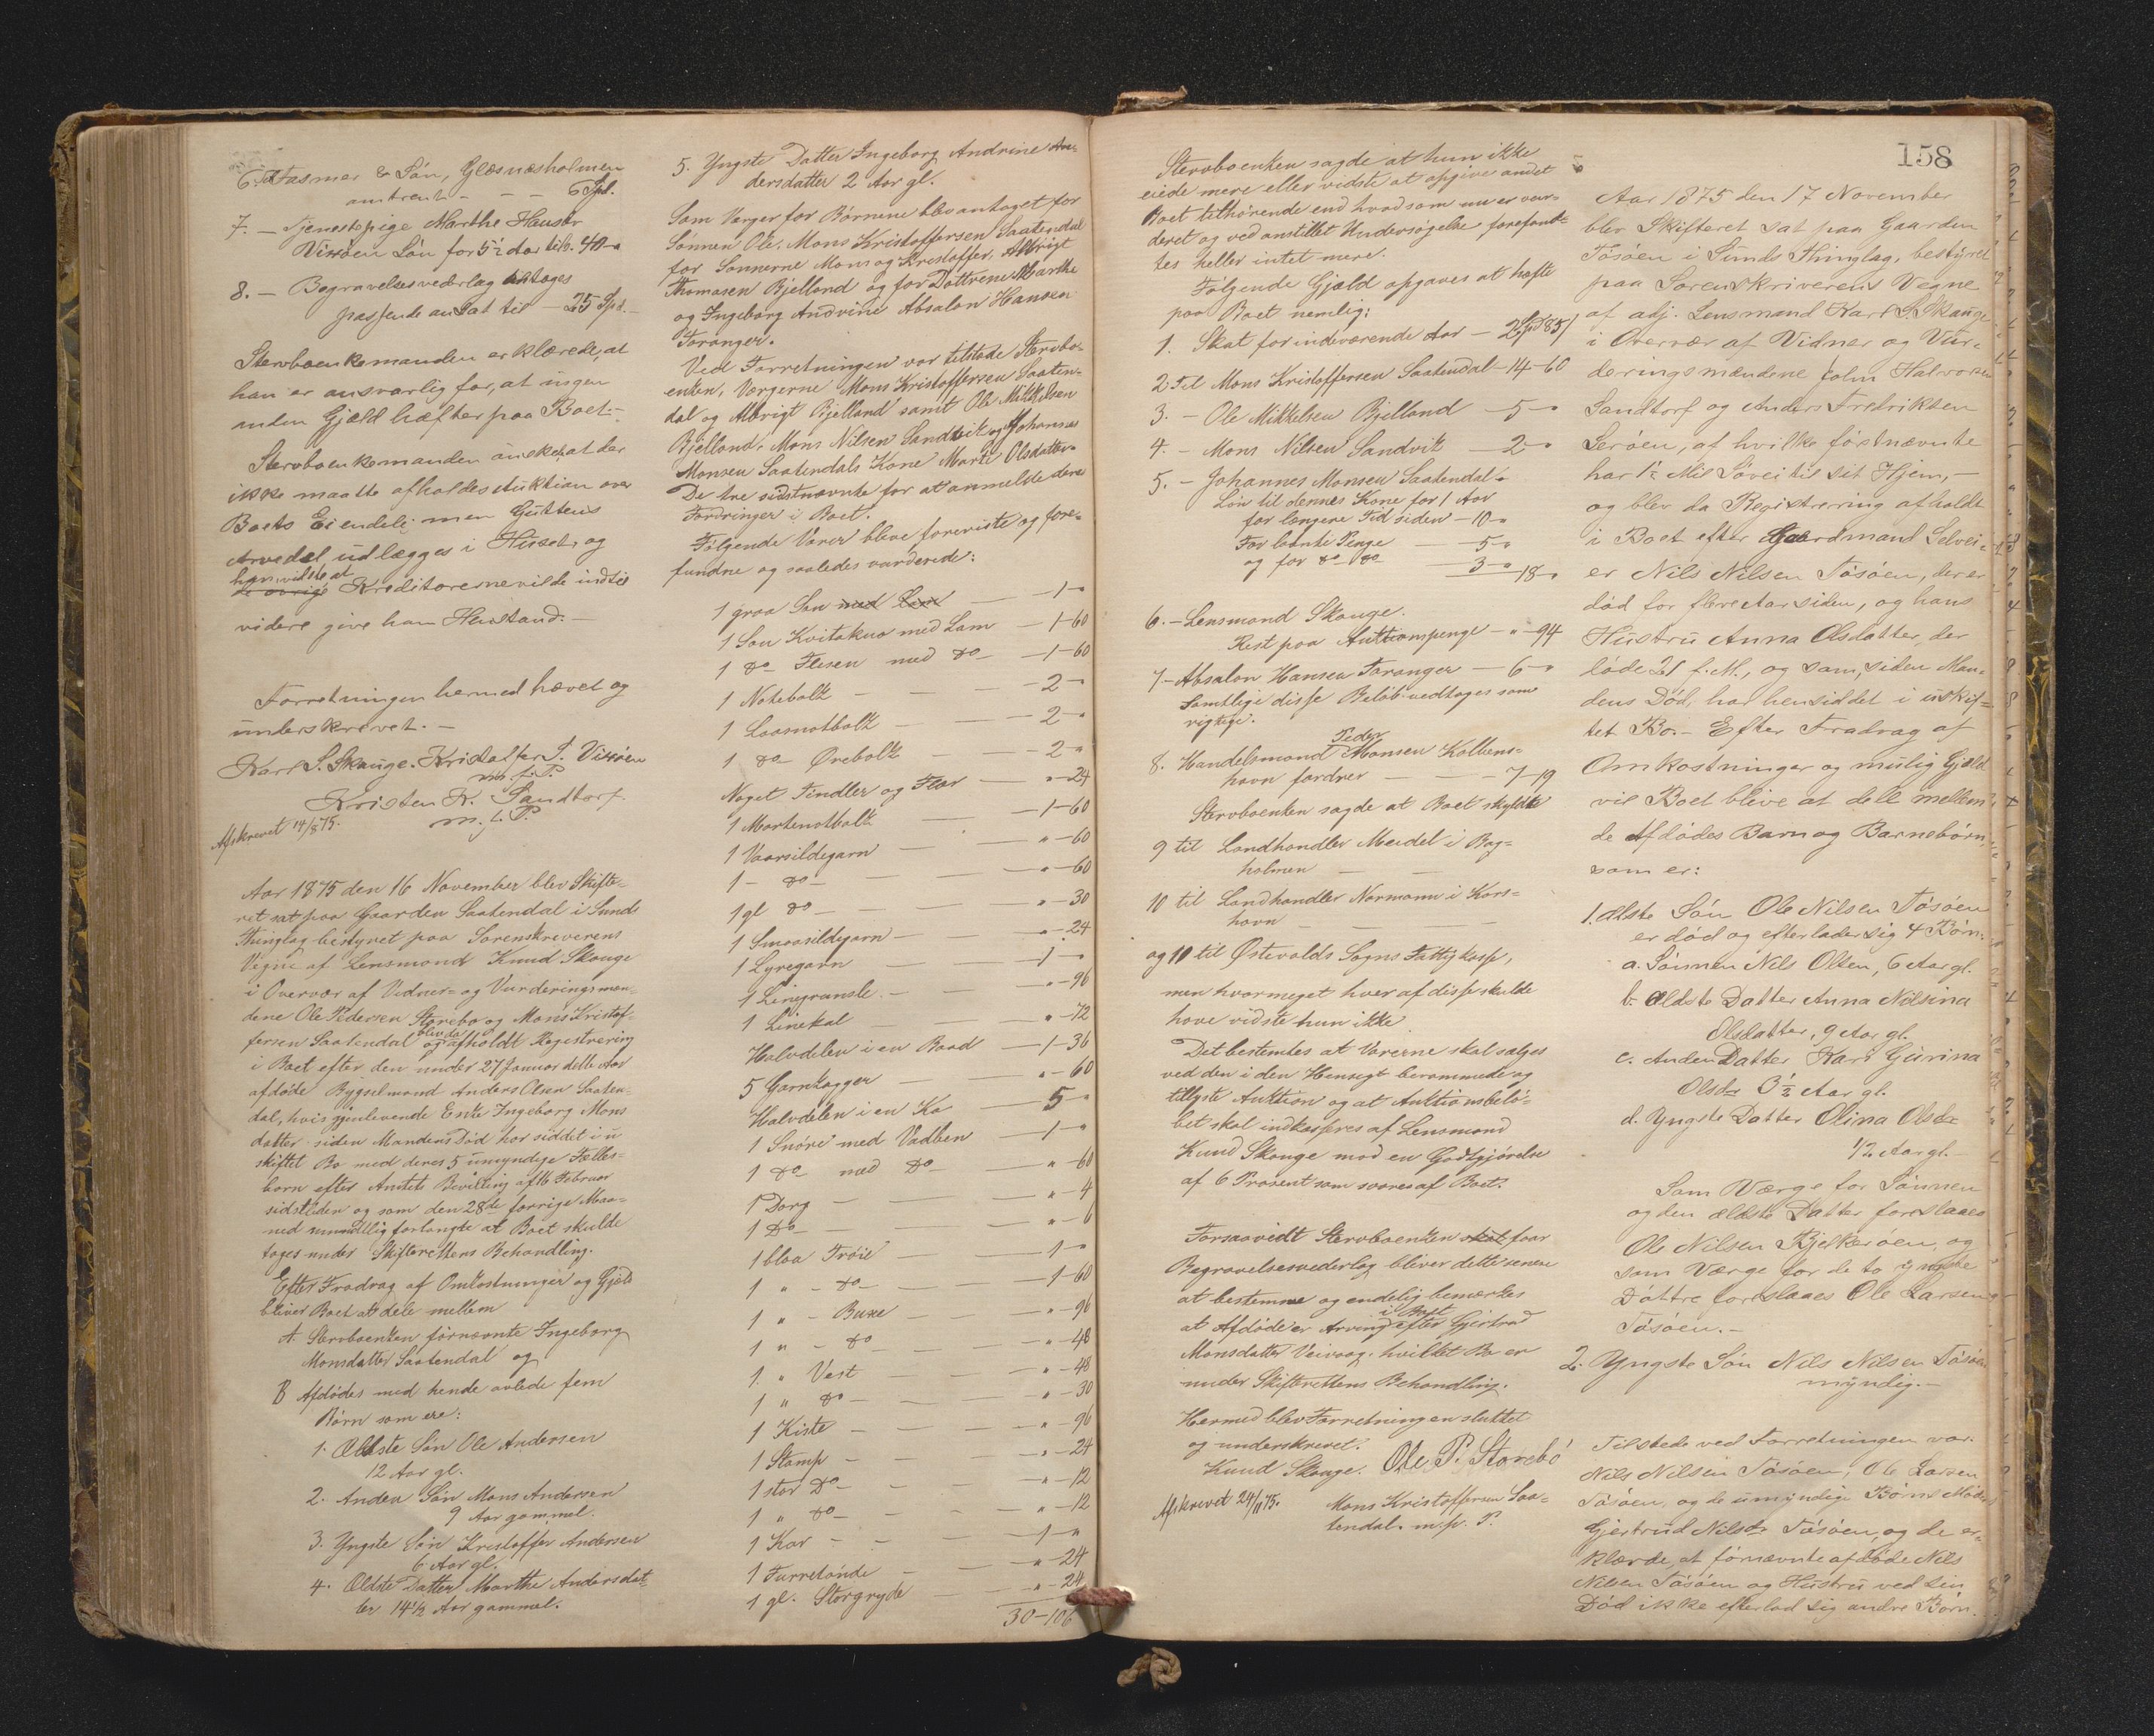 6. til Fasmer & Søn, Glæsnæsholmen
omtrent - - - 6 Spd.
7. - Tjenestepige Marthe Hansdr
Vixøen Løn for 5½ Aar tils. 40 -"
8. - Begravelsesvederlag antoges
passende ansat til - 25 Spd. -
Stervboenkemanden erklærede, at
han er ansvarlig for, at ingen
anden Gjæld hæfter paa Boet. -
Stervboenkemanden ønsket, at der
ikke maatte afholdes Auktion over
Boets Eiendele, men Guttens
Arvedel udlægges i Huset, og
han vilste at
de øvrige Kreditorerne vilde indtil
videre give ham Henstand. -
Forretningen hermed hævet og
underskrevet. -
Karl S. Skauge. Kristoffer J. Vixøen
m. f. P.
Kristen K. Sandtorf.
m. f. P.
Afskrevet 14/8 75.
Aar 1875 den 16 November blev Skifte-
ret sat paa Gaarden Saatendal i Sunds
Thinglag bestyret paa Sorenskriverens
Vegne af Lensmand Knud Skauge
i Overvær af Vidner- og Vurderingsmæn-
dene Ole Pedersen Storebø og Mons Kristof-
fersen Saatendal og
blev da
afholdt Registrering
i Boet efter den under 27 Januar dette Aar
afdøde Bygselmand Anders Olsen Saaten-
dal, hvis gjenlevende Enke Ingeborg Mons
datter siden Mandens Død har siddet i u
skiftet Bo med deres 5 umyndige Fælles-
børn efter Amtets Bevilling af 16 Februar
sidstleden og som den 28de forrige Maa-
ned mundtlig forlangte at Boet skulde
tages under Skifterettens Behandling.
Efter Fradrag af Omkostninger og Gjæld
bliver Boet at dele mellem
A Stervboenken førnævnte Ingeborg
Monsdatter Saatendal og
B Afdødes med hende avlede fem
Børn som ere:
1. Ældste Søn Ole Andersen
12 Aar gl.
2. Anden Søn Mons Andersen
9 Aar gammel.
3. Yngste Søn Kristoffer Andersen
6 Aar gl.
4. Ældste Datter Marthe Andersdat-
ter 14½ Aar gammel.
5. Yngste Datter Ingeborg Andrine An-
dersdatter 2 Aar gl.
Som Verger for Børnene blev antaget for
Sønnen Ole, Mons Kristoffersen Saatendal
for Sønnerne Mons og Kristoffer, Albrigt
Thomasen Bjelland og for Døttrene Marthe
og Ingeborg Andrine Absalon Hansen
Toranger.
Ved Forretningen var tilstede Stervbo-
enken, Vergerne Mons Kristoffersen Saaten-
dal og Albrigt Bjelland samt Ole Mikkelsen
Bjelland, Mons Nilsen Sandvik og Johannes
Monsen Saatendals Kone Marte Olsdatter.
De tre sidstnævnte for at anmelde deres
Fordringer i Boet.
Følgende Varer bleve foreviste og fore-
fundne og saaledes vurderede:
1 graa Sau med Lam — 1 "
1 Sau Kvitakua med Lam — 1-60
1 do Flesen med do — 1-60
1 Notebolk — 2 "
1 Laasnotbolk — 2 "
1 do Ørebolk — 2 "
Noget Tindler og Flaar — "-24
1 Mortenotbolk — 1-60
1 Vaarsildegarn — "-60
1 - do — "-60
1 gl do — "-30
1 Smaasildegarn — "-24
1 Lyregarn — 1 "
1 Linegransle — "-96
1 Linekal — "-72
Halvdelen i en Baad — 1-36
5 Garnkagger — "-60
Halvdelen i en Ko — 5 "
1 Snøre med Vadben — 1 "
1 do med Do — "-60
1 Dorg — "-4
1 Do — "-6
1 blaa Trøie — 1 "
1 " - do — 1-60
1 " - Buxe — "-96
1 " - do — "-48
1 " Vest — "-48
1 " do — "-30
1 Kiste — "-96
1 Stamp — "-24
1 stor Do — "-12
1 " do — "-12
1 Kar — 1 "
1 Furretønde — "-24
1 gl. Storgryde — "-24
30-106
Stervboenken sagde at hun ikke
eiede mere eller vidste at opgive andet
Boet tilhørende end hvad som nu er vur-
deret og ved anstillet Undersøgelse forefand-
tes heller intet mere.
Følgende Gjæld opgaves at hæfte
paa Boet nemlig:
1. Skat for indeværende Aar — 2 Spd 85 /
2 Til Mons Kristoffersen Saatendal - 14-60
3. - Ole Mikkelsen Bjelland - 5 "
4. - Mons Nilsen Sandvik — 2 "
5. - Johannes Monsen Saatendal "
Løn til dennes Kone for 1 Aar
for længere Tid siden - 10 "
For laante Penge — 5 "
og for do do — 3 " 18 "
6. - Lensmand Skauge.
Rest paa Auktionspenge - " - 94
7 - Absalon Hansen Toranger - 6 "
Samtlige disse Beløb vedtages som
rigtige.
8. Handelsmand
Peder
Monsen Kolbens-
havn fordrer — 7-19
Stervboenken sagde at Boet skyldte
9 til Landhandler Meidel i Bag-
holmen —
10 til Landhandler Normann i Kors-
havn —
og 11 til Østevolds Sogns Fattigkasse,
men hvormeget hver af disse skulde
have vidste hun ikke.
Det bestemtes at Varerne skal sælges
ved den i den Hensigt berammede og
tillyste Auktion og at Auktionsbelø-
bet skal indkasseres af Lensmand
Knud Skauge mod en Godtgjørelse
af 6 Prosent som svares af Boet.
Forsaavidt Stervboenken skal faar
Begravelsesvederlag bliver dette senere
at bestemme og endelig bemærkes
at Afdøde er Arving
i Boet
efter Gjertrud
Monsdatter Veivaag, hvilket Bo er
under Skifterettens Behandling.
Hermed blev Forretningen sluttet
og underskrevet.
Knud Skauge. Ole P. Storebø
Afskrevet 24/11 75. Mons Kristoffersen Saa-
tendal. m. p. P.
158
Aar 1875 den 17 November
blev Skifteret sat paa Gaarden
Tøsøen i Sunds Thinglag, bestyret
paa Sorenskriverens Vegne
af adj. Lensmand Karl S. Skauge
i Overvær af Vidner og Vur-
deringsmændene John Halvorsen
Sandtorf og Anders Fredriksen
Serøen, af hvilke førstnævnte
har 1½ Mil Søvei til sit Hjem, -
og blev da Registrering afholdt
i Boet efter Gaardmand Selvei-
er Nils Nilsen Tøsøen, der er
død for flere Aar siden, og hans
Hustru Anna Olsdatter, der
døde 21 f. M., og som, siden Man-
dens Død, har hensiddet i uskif-
tet Bo. - Efter Fradrag af
Omkostninger og mulig Gjæld
vil Boet blive at dele mellem
de Afdødes Barn og Barnebørn,
som er:
1. Ælste Søn Ole Nilsen Tøsøen
er død og efterlader sig 4 Børn:
a. Sønnen Nils Olsen, 6 Aar gl.
b. Ældste Datter Anna Nilsina
Olsdatter, 9 Aar gl.
c. Anden Datter Kari Gurina
Olsdr 3½ Aar gl.
d. Yngste Datter Olina Olsdr
1/2 Aar gl.
Som Værge for Sønnen
og den ældste Datter foreslaaes
Ole Nilsen Kjelkerøen, og
som Værge for de to yngste
Døttre foreslaaes Ole Larsen
Tøsøen. -
2. Yngste Søn Nils Nilsen Tøsøen
myndig. -
Tilstede ved Forretningen var:
Nils Nilsen Tøsøen, Ole Larsen
Tøsøen, og de umyndige Børns Moder
Gjertrud Nilsdr Tøsøen, og de er-
klærde, at førnævnte afdøde Nils
Nilsen Tøsøen og Hustru ved sin
Død ikke efterlod sig andre Børn.